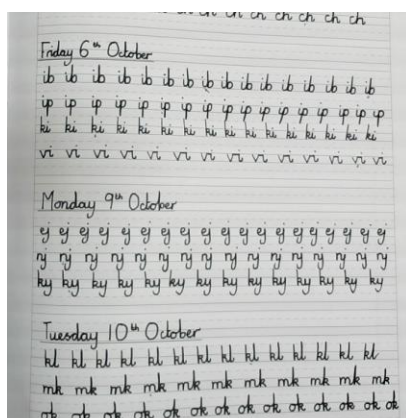 ch ch ch ch ch ch ch
Friday 6th October
ib ib ib ib ib ib ib ib ib ib ib ib ib ib ib ib
ip ip ip ip ip ip ip ip ip ip ip ip ip ip ip ip
ki ki ki ki ki ki ki ki ki ki ki ki ki ki ki ki
vi vi vi vi vi vi vi vi vi vi vi vi vi vi
Monday 9th October
ej ej ej ej ej ej ej ej ej ej ej ej ej ej ej ej ej ej
nj nj nj nj nj nj nj nj nj nj nj nj nj nj nj
ky ky ky ky ky ky ky ky ky ky ky ky ky ky
Tuesday 10th October
kl kl kl kl kl kl kl kl kl kl kl kl kl kl
mk mk mk mk mk mk mk mk mk mk mk
ok ok ok ok ok ok ok ok ok ok ok ok ok